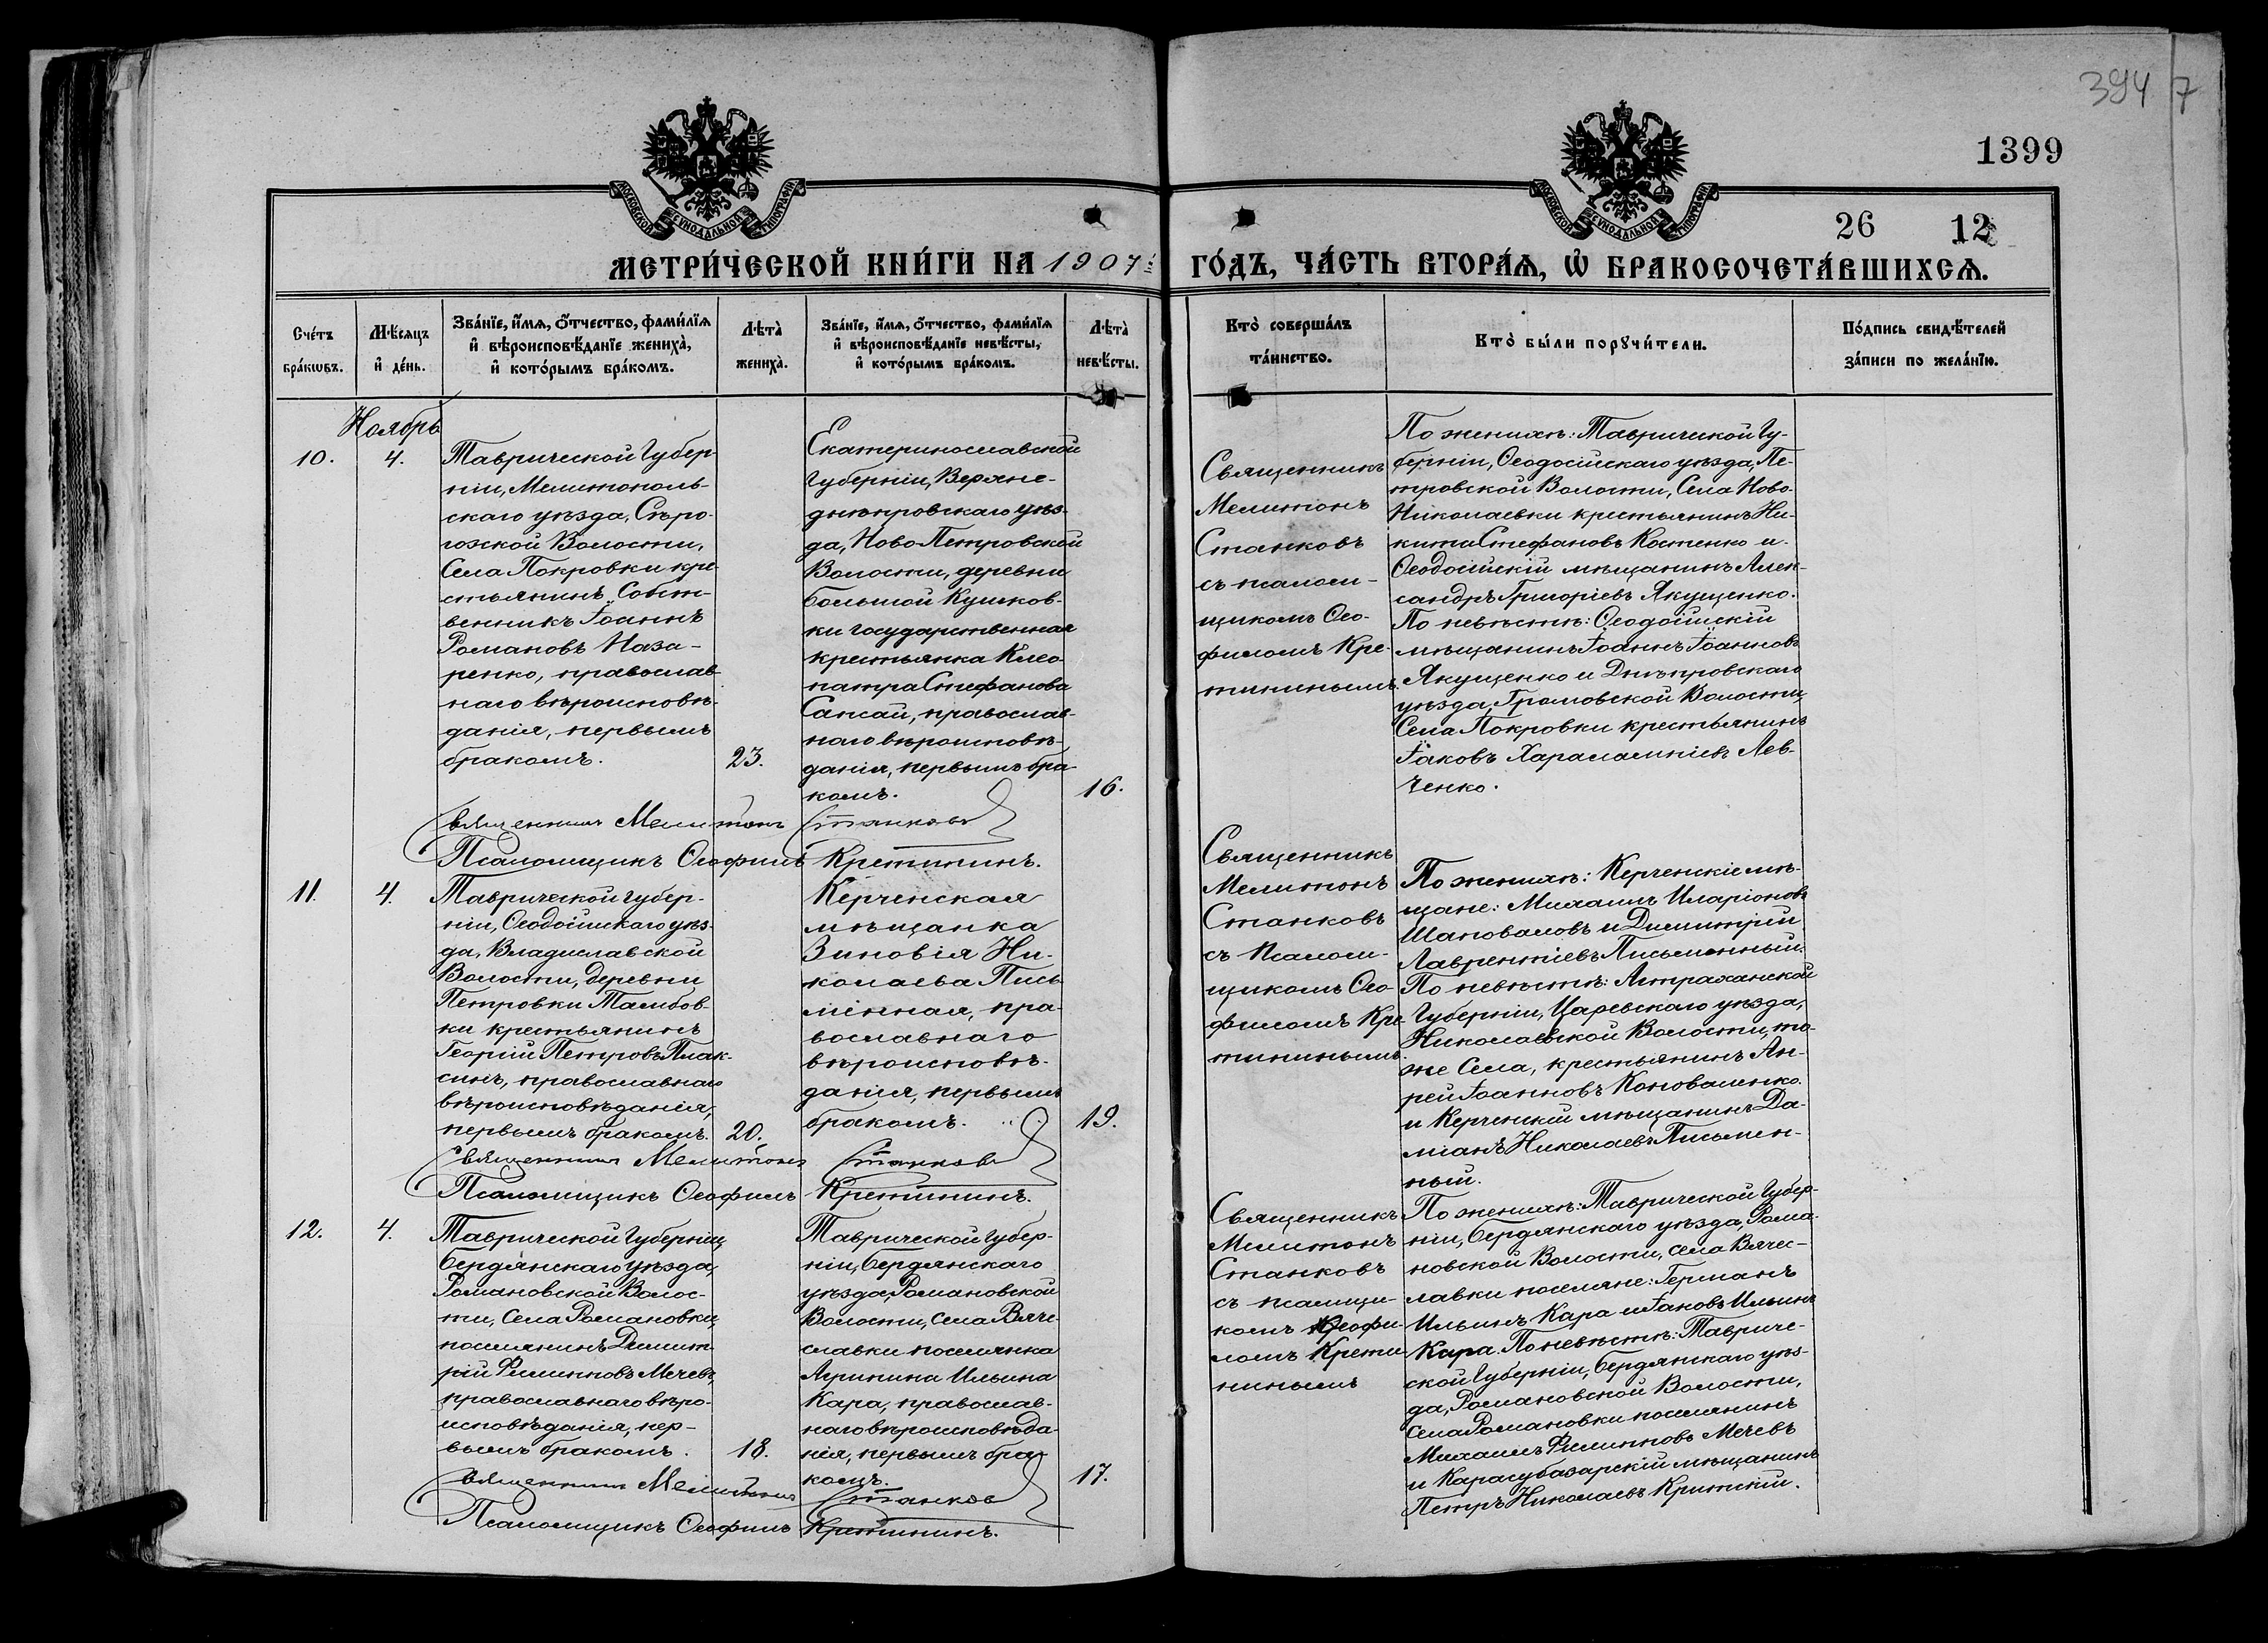 394 7
1399
26 12
МОСКОВСКОЙ СѴНОДАЛЬНОЙ ТИПОГРАФІИ
МОСКОВСКОЙ СѴНОДАЛЬНОЙ ТИПОГРАФІИ
МЕТРИ́ЧЕСКОЙ КНИ́ГИ НА 1907й ГО́ДЪ, ЧА́СТЬ ВТОРА́Ѧ, Ѽ БРАКОСОЧЕТА́ВШИХСѦ.
Сче́тъ
бра́кѡвъ.
Мѣ́сѧцъ
и҆ де́нь.
Зва́нїе, и҆́мѧ, ѻ҆́тчество, фами́лїѧ
и҆ вѣроисповѣ́данїе жениха̀,
и҆ кото́рымъ бра́комъ.
Лѣта̀
жениха̀.
Зва́нїе, и҆́мѧ, ѻ҆́тчество, фами́лїѧ
и҆ вѣроисповѣ́данїе невѣ́сты,
и҆ кото́рымъ бра́комъ.
Лѣта̀
невѣ́сты.
Кто̀ соверша́лъ
та́инство.
Кто̀ бы́ли порꙋчи́тели.
По́дпись свидѣ́телей
за́писи по жела́нїю.
Ноябрь
10.
4.
Таврической Губер-
ніи, Мелитополь-
скаго уѣзда, Сѣро-
гозской Волости,
Села Покровки кре-
стьянинъ Собст-
венникъ Іоаннъ
Романовъ Наза-
ренко, православ-
наго вѣроисповѣ-
данія, первымъ
бракомъ.
23.
Екатеринославской
Губерніи, Верхне-
днѣпровскаго уѣз-
да, Ново Петровской
Волости, деревни
большой Кушков-
ки государственная
крестьянка Клео-
патра Стефанова
Сапсай, православ-
наго вѣроисповѣ-
данія, первымъ бра-
комъ.
16.
Священникъ Мелитонъ Станковъ
Псаломщикъ Ѳеофилъ Кретининъ.
Священникъ
Мелитонъ
Станковъ
съ псалом-
щикомъ Ѳео-
филомъ Кре-
тининымъ.
По женихѣ: Таврической Гу-
берніи, Ѳеодосійскаго уѣзда, Пе-
тровской Волости, Села Ново-
Николаевки крестьянинъ Ни-
кита Стефановъ Костенко и
Ѳеодосійскій мѣщанинъ Алек-
сандръ Григоріевъ Якущенко.
По невѣстѣ: Ѳеодосійскій
мѣщанинъ Іоаннъ Іоанновъ
Якущенко и Днѣпровскаго
уѣзда, Громовской Волости,
Села Покровки крестьянинъ
Іаковъ Харалампіевъ Лев-
ченко.
11.
4.
Таврической Губер-
ніи, Ѳеодосійскаго уѣз-
да, Владиславской
Волости, деревни
Петровки Тамбов-
ки крестьянинъ
Георгій Петровъ Плак-
синъ, православнаго
вѣроисповѣданія,
первымъ бракомъ.
20.
Керченская
мѣщанка
Зиновія Ни-
колаева Пись-
менная, пра-
вославнаго
вѣроисповѣ-
данія, первымъ
бракомъ.
19.
Священникъ Мелитонъ Станковъ
Псаломщикъ Ѳеофилъ Кретининъ.
Священникъ
Мелитонъ
Станковъ
съ псалом-
щикомъ Ѳео-
филомъ Кре-
тининымъ.
По женихѣ: Керченскіе мѣ-
щане: Михаилъ Иларіоновъ
Шаповаловъ и Димитрій
Лаврентіевъ Письменный.
По невѣстѣ: Астраханской
Губерніи, Царевскаго уѣзда,
Николаевской Волости, то-
же Села, крестьянинъ Ан-
рей Іоанновъ Коноваленко
и Керченскій мѣщанинъ Да-
міанъ Николаевъ Письмен-
ный.
12.
4.
Таврической Губерніи,
бердянскаго уѣзда,
Романовской Волос-
ти, Села Романовки,
поселянинъ Димит-
рій Филипповъ Мечевъ,
православнаго вѣро-
исповѣданія, пер-
вымъ бракомъ.
18.
Таврической Губер-
ніи, бердянскаго
уѣзда, Романовской
Волости, села Вяче-
славки поселянка
Агрипина Ильина
Кара, православ-
наго вѣроисповѣда-
нія, первымъ бра-
комъ.
17.
Священникъ Мелитонъ Станковъ
Псаломщикъ Ѳеофилъ Кретининъ.
Священникъ
Мелитонъ
Станковъ
съ псаломщи-
комъ Ѳеофи-
ломъ Крети-
нинымъ
По женихѣ: Таврической Губер-
ніи, бердянскаго уѣзда, Рома-
новской Волости, села Вячес-
лавки поселяне: Германъ
Ильинъ Кара и Іаковъ Ильинъ
Кара. По невѣстѣ: Тавриче-
ской Губерніи, бердянскаго уѣз-
да, Романовской Волости,
села Романовки поселянинъ
Михаилъ Филипповъ Мечевъ
и Карасубазарскій мѣщанинъ
Петръ Николаевъ Критскій.